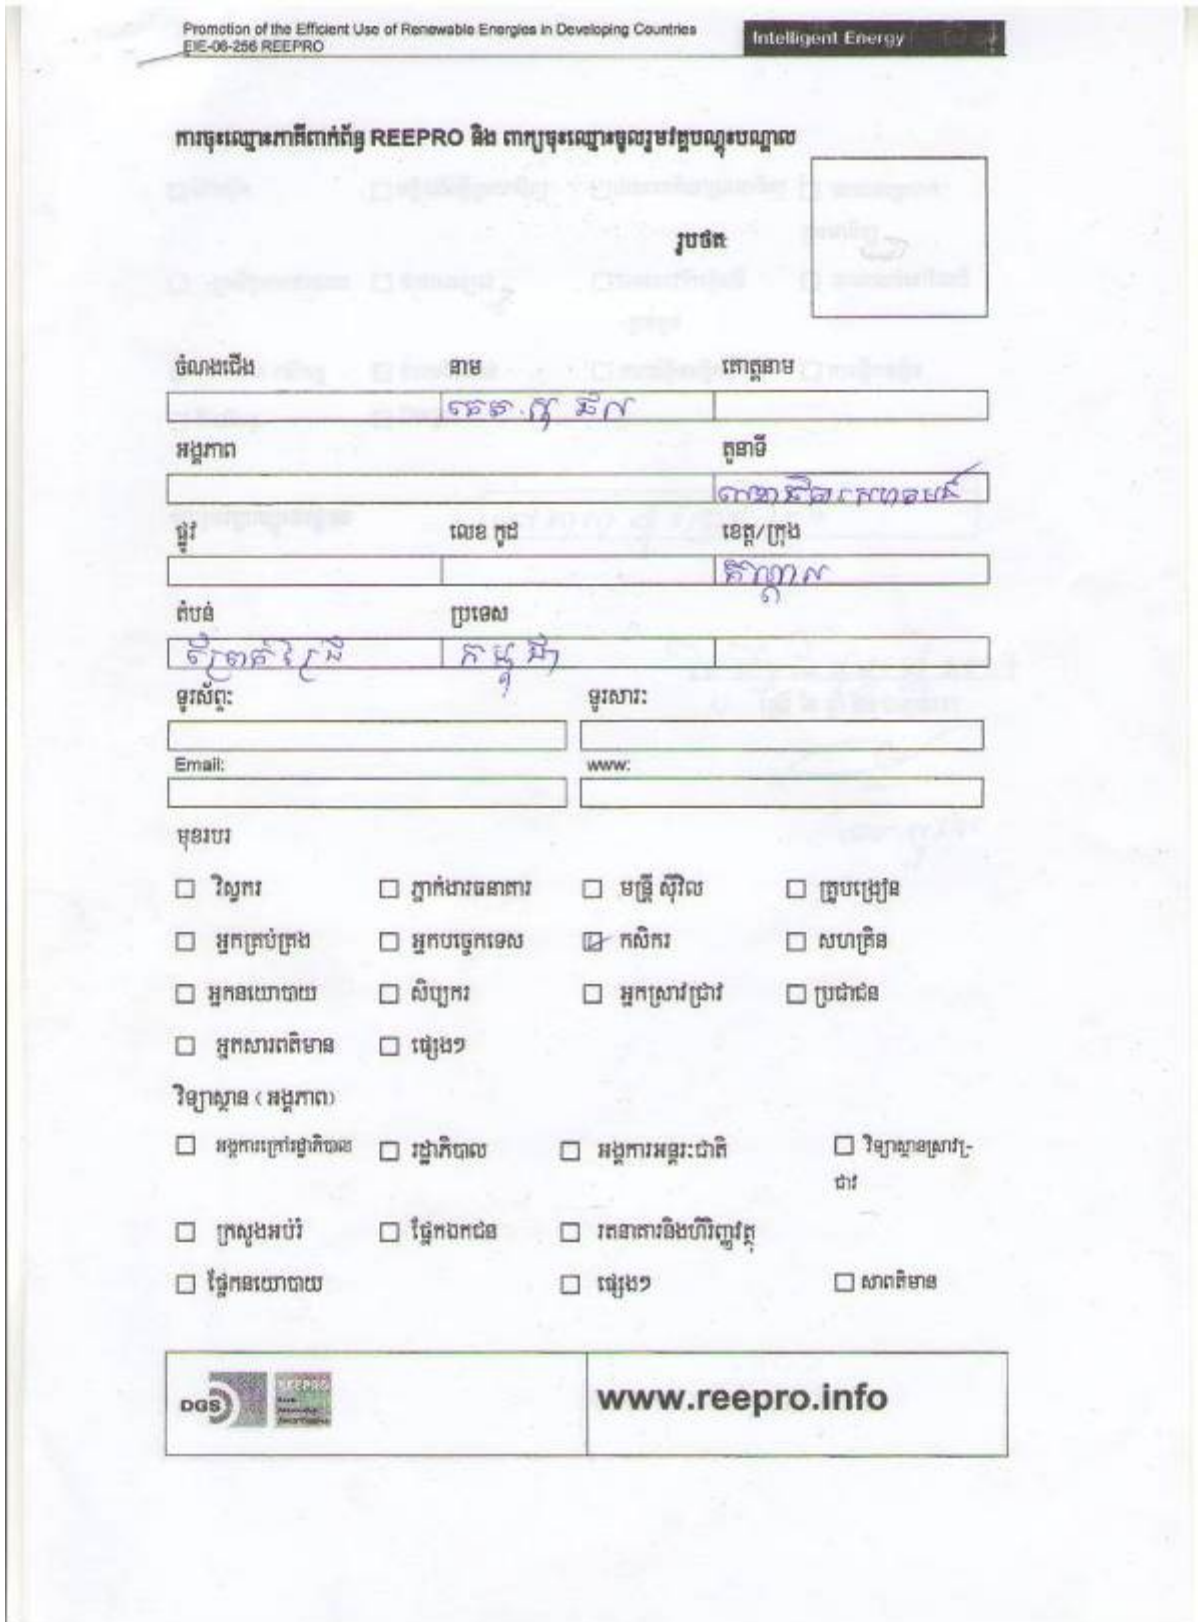 Promotion of the Efficient Use of Renewable Energies in Developing Countries
EIE-06-256 REEPRO
Intelligent Energy
ការចុះឈ្មោះភាគីពាក់ព័ន្ធ REEPRO និង ពាក្យចុះឈ្មោះចូលរួមវគ្គបណ្តុះបណ្តាល
រូបថត:
ចំណងជើង នាម គោត្តនាម
អង្គភាព តួនាទី
ផ្លូវ លេខ កូដ ខេត្ត/ក្រុង
កណ្តាល
តំបន់ ប្រទេស
កម្ពុជា
ទូរស័ព្ទ: ទូរសារ:
Email: www:
មុខរបរ
វិស្វករ ភ្នាក់ងារធនាគារ មន្ត្រី ស៊ីវិល គ្រូបង្រៀន
អ្នកគ្រប់គ្រង អ្នកបច្ចេកទេស កសិករ សហគ្រិន
អ្នកនយោបាយ សិប្បករ អ្នកស្រាវជ្រាវ ប្រជាជន
អ្នកសារពតិមាន ផ្សេងៗ
វិទ្យាស្ថាន ( អង្គភាព)
អង្គការក្រៅរដ្ឋាភិបាល រដ្ឋាភិបាល អង្គការអន្តរ:ជាតិ វិទ្យាស្ថានស្រាវ-
ជ្រាវ
ក្រសួងអប់រំ ផ្នែកឯកជន រតនាគារនិងហិរិញ្ញវត្ថុ
ផ្នែកនយោបាយ ផ្សេងៗ សាពតិមាន
DGS REEPRO www.reepro.info